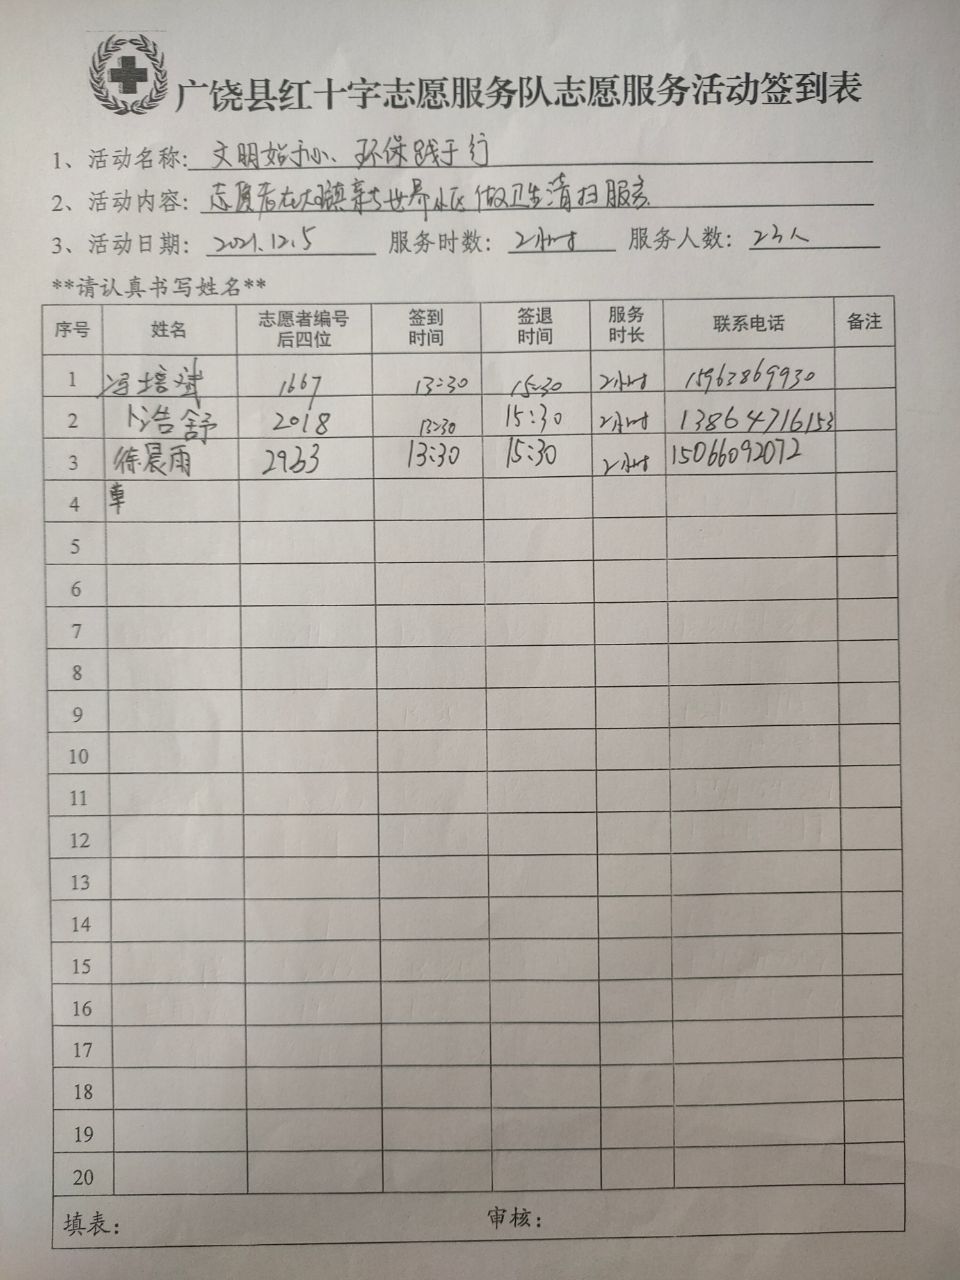 广饶县红十字志愿服务队志愿服务活动签到表
1、活动名称: 文明始于小、环保践于行
2、活动内容: 志愿者在大王镇新世界小区做卫生清扫服务
3、活动日期: 2021.12.5 服务时数: 2小时 服务人数: 23人
**请认真书写姓名**
序号 姓名 志愿者编号后四位 签到时间 签退时间 服务时长 联系电话 备注
1 冯培斌 1667 13:30 15:30 2小时 15963869930
2 卜浩舒 2018 13:30 15:30 2小时 13864716153
3 徐晨雨 2963 13:30 15:30 2小时 15066092072
4
5
6
7
8
9
10
11
12
13
14
15
16
17
18
19
20
填表: 审核: